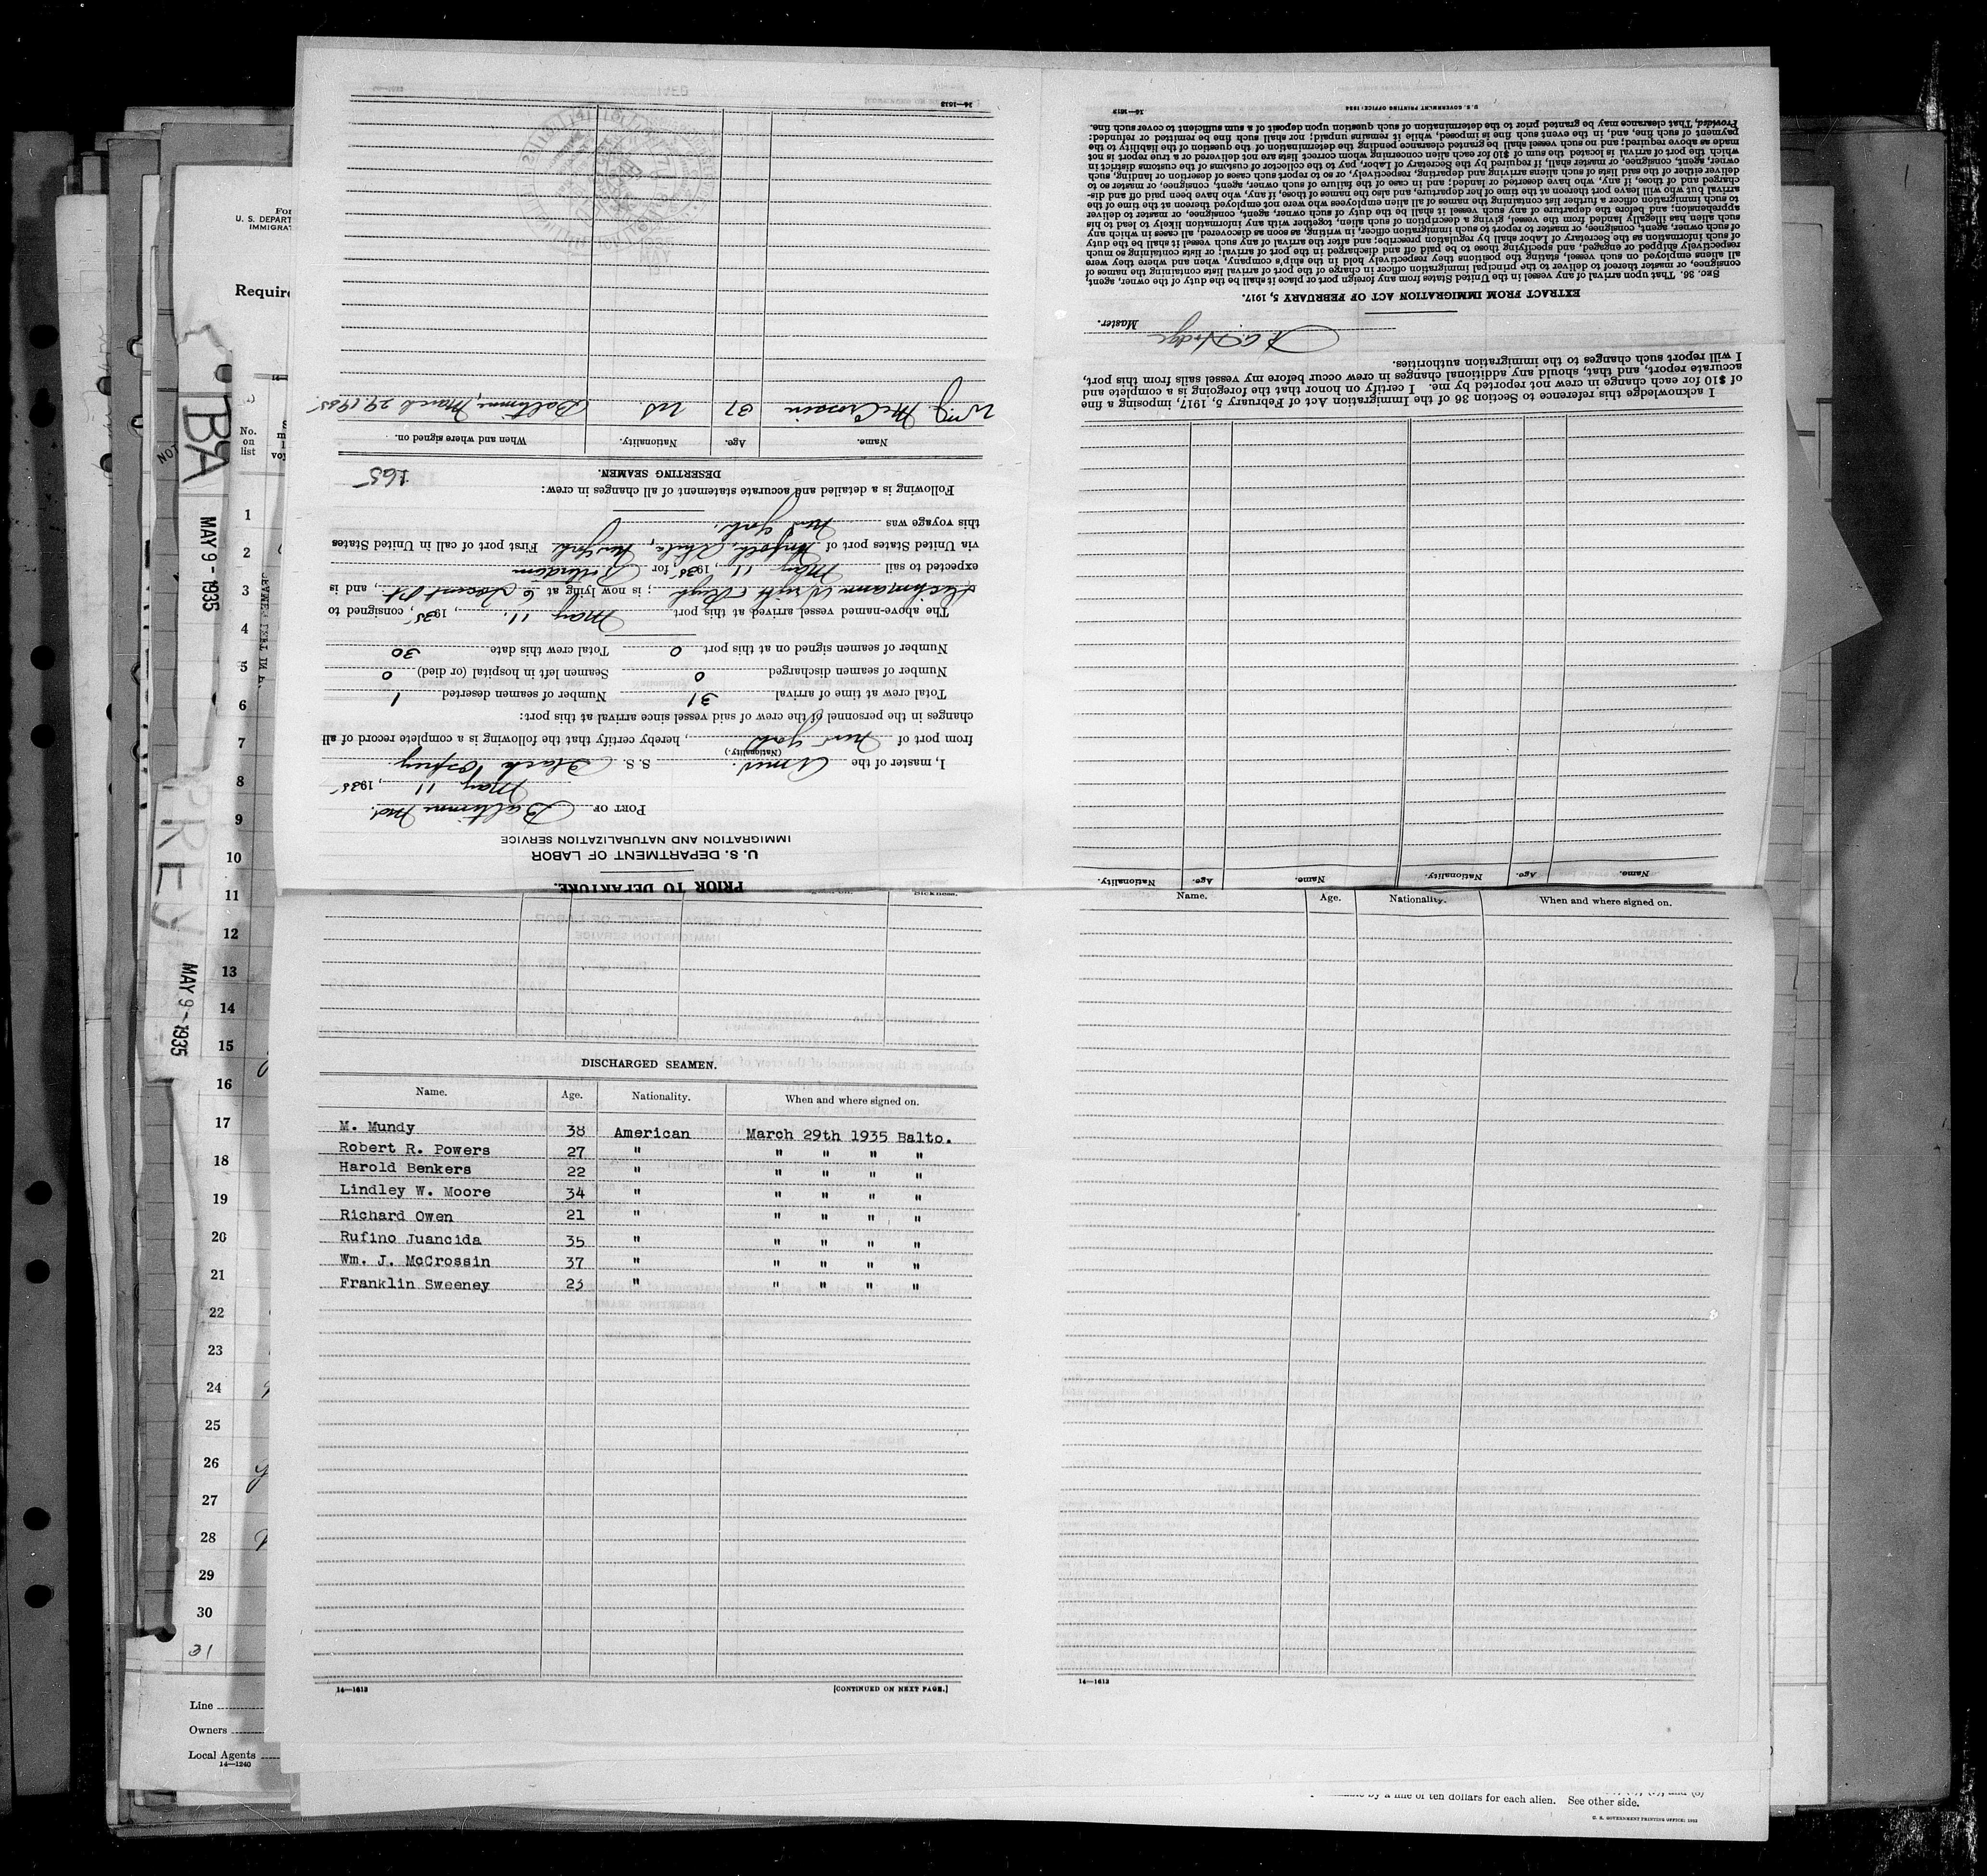 For
U. S. DEPART
IMMIGRAT
Require
No.
on
list
BA
MAY 9 - 1935
PREV
MAY 9 - 1935
1
2
3
4
5
6
7
8
9
10
11
12
13
14
15
16
17
18
19
20
21
22
23
24
25
26
27
28
29
30
Line
Owners
Local Agents
14—1240
PRIOR TO DEPARTURE.
U. S. DEPARTMENT OF LABOR
IMMIGRATION AND NATURALIZATION SERVICE
PORT OF Baltimore Md.
May 11, 1935
I, master of the Amer. S. S. Black Osprey
(Nationality.)
from port of New York, hereby certify that the following is a complete record of all
changes in the personnel of the crew of said vessel since arrival at this port:
Total crew at time of arrival 31 Number of seamen deserted 1
Number of seamen discharged 0 Seamen left in hospital (or died) 0
Number of seamen signed on at this port 0 Total crew this date 30
The above-named vessel arrived at this port May 11, 1935, consigned to
; is now lying at 6 Locust Pt, and is
expected to sail May 11, 1935; for Rotterdam
via United States port of Norfolk, Phila, New York First port of call in United States
this voyage was New York.
Following is a detailed and accurate statement of all changes in crew:
165
DESERTING SEAMEN.
Name. Age. Nationality. When and where signed on.
Wm J McCrossin 37 US. Baltimore, March 29 1935
14—1613
Name. Age. Nationality. Name. Age. Nationality.
I acknowledge this reference to Section 36 of the Immigration Act of February 5, 1917, imposing a fine
of $10 for each change in crew not reported by me. I certify on honor that the foregoing is a complete and
accurate report, and that, should any additional changes in crew occur before my vessel sails from this port,
I will report such changes to the immigration authorities.
Hodge
Master.
EXTRACT FROM IMMIGRATION ACT OF FEBRUARY 5, 1917.
SEC. 36. That upon arrival of any vessel in the United States from any foreign port or place it shall be the duty of the owner, agent,
consignee, or master thereof to deliver to the principal immigration officer in charge of the port of arrival lists containing the names of
all aliens employed on such vessel, stating the positions they respectively hold in the ship's company, when and where they were
respectively shipped or engaged, and specifying those to be paid off and discharged in the port of arrival; or lists containing so much
of such information as the Secretary of Labor shall by regulation prescribe; and after the arrival of any such vessel it shall be the duty
of such owner, agent, consignee, or master to report to such immigration officer, in writing, as soon as discovered, all cases in which any
such alien has illegally landed from the vessel, giving a description of such alien, together with any information likely to lead to his
apprehension; and before the departure of any such vessel it shall be the duty of such owner, agent, consignee, or master to deliver
to such immigration officer a further list containing the names of all alien employees who were not employed thereon at the time of the
arrival but who will leave port thereon at the time of her departure, and also the names of those, if any, who have been paid off and dis-
charged and of those, if any, who have deserted or landed; and in case of the failure of such owner, agent, consignee, or master so to
deliver either of the said lists of such aliens arriving and departing, respectively, or so to report such cases of desertion or landing, such
owner, agent, consignee, or master, shall, if required by the Secretary of Labor, pay to the collector of customs of the customs district in
which the port of arrival is located the sum of $10 for each alien concerning whom correct lists are not delivered or a true report is not
made as above required; and no such vessel shall be granted clearance pending the determination of the question of the liability to the
payment of such fine, and, in the event such fine is imposed, while it remains unpaid; nor shall such fine be remitted or refunded:
Provided, That clearance may be granted prior to the determination of such question upon deposit of a sum sufficient to cover such fine.
U. S. GOVERNMENT PRINTING OFFICE: 1934 14—1613
Sickness.
DISCHARGED SEAMEN.
Name. Age. Nationality. When and where signed on.
M. Mundy 38 American March 29th 1935 Balto.
Robert R. Powers 27 " " " " "
Harold Benkers 22 " " " " "
Lindley W. Moore 34 " " " " "
Richard Owen 21 " " " " "
Rufino Juancida 35 " " " " "
Wm. J. McCrossin 37 " " " " "
Franklin Sweeney 23 " " " " "
14—1613 [CONTINUED ON NEXT PAGE.]
Name. Age. Nationality. When and where signed on.
14—1613
by a fine of ten dollars for each alien. See other side.
U. S. GOVERNMENT PRINTING OFFICE: 1933